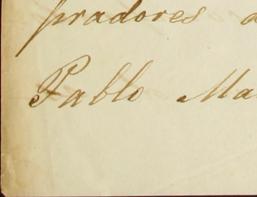 pradores
Pablo Ma